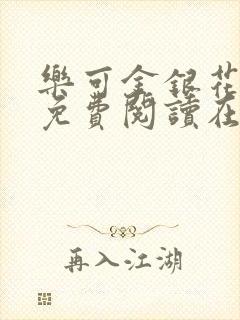 樂可金銀花
免費閱讀在
再入江湖